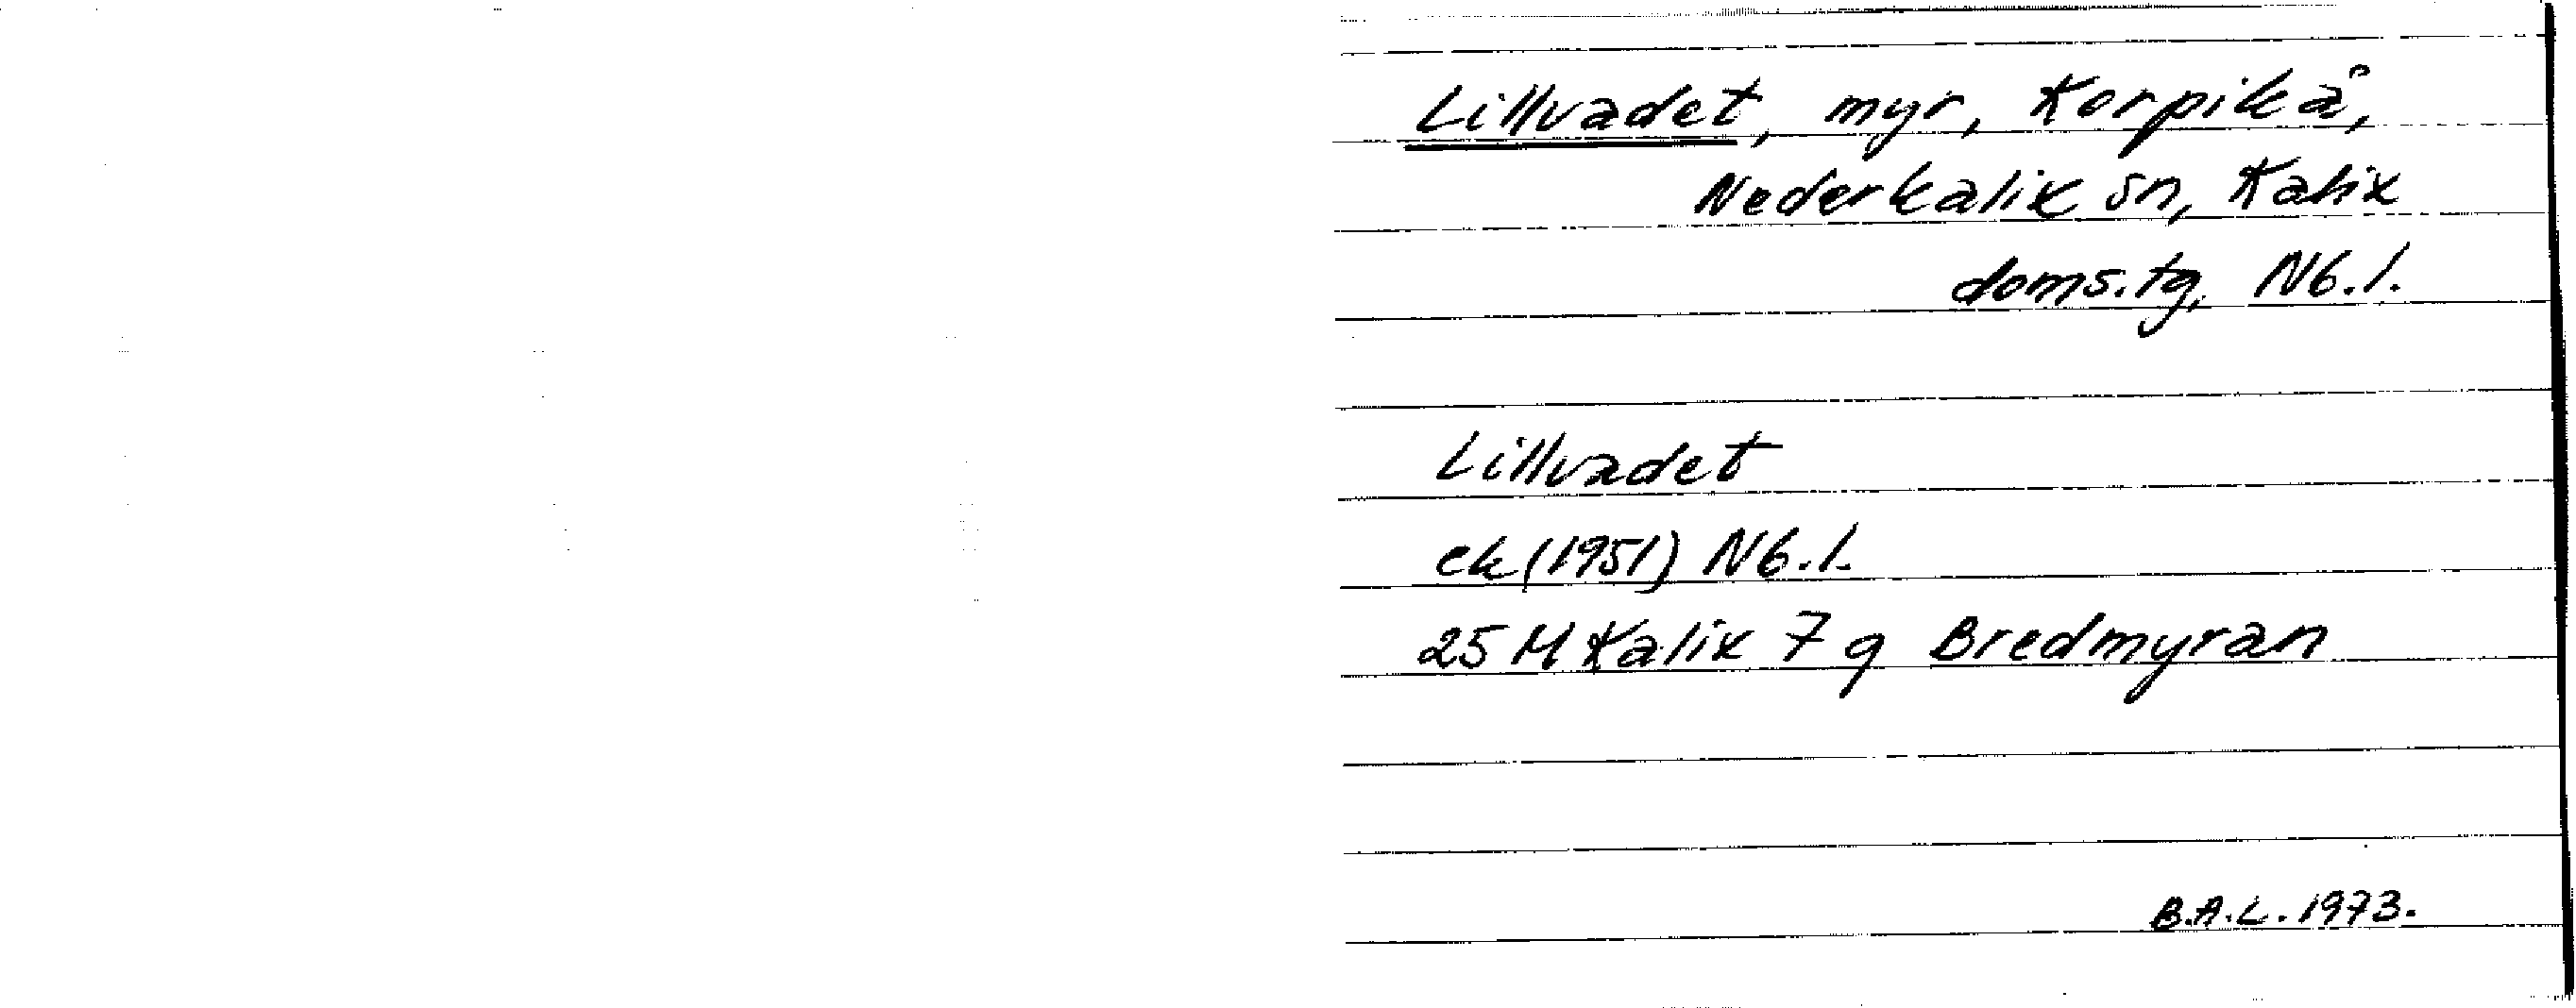 Lillvadet, myr, Korpikå,
Nederkalix sn, Kalix
doms.tg, Nb.l.
Lillvadet
ek (1951) Nb.l.
25 M Kalix 7 g Bredmyran
B.A.L. 1973.